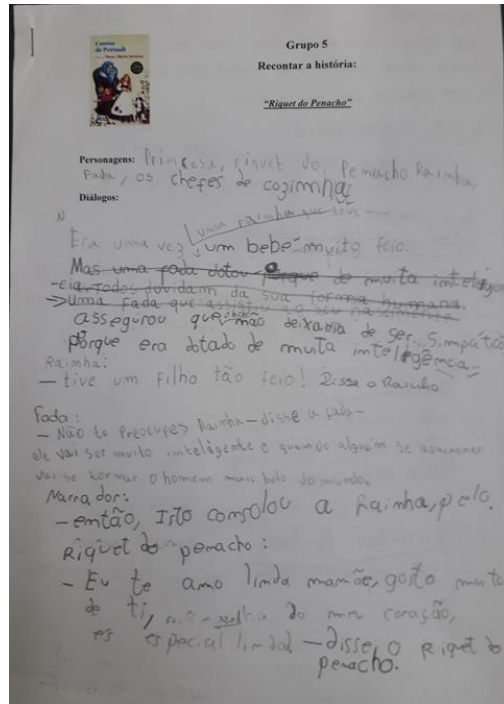 Contos
de Perrault
Grupo 5
Recontar a história:
"Riquet do Penacho"
Personagens: Princesa, riquet do Penacho, Rainha,
Fada, os chefes de cozinha
Diálogos:
N
uma rainha que teve
Era uma vez um bebé muito feio.
Mas uma fada dotou-o porque de muita inteligên
-cia. Todos duvidam da sua forma humana.
→ Uma fada que assistiu ao seu nascimento
assegurou que não deixaria de ser simpático
porque era dotado de muita intelegência.
Rainha:
— tive um filho tão feio! Disse a Rainha
Fada:
— Não te preocupes Rainha — disse a fada —
ele vai ser muito inteligente e quando alguém se apaixonar
vai se tornar o homem mais belo do mundo.
Narrador:
— então, Isto consolou a Rainha, pelo.
Riquet do penacho:
— Eu te amo linda mamãe, gosto muito
de ti, do meu coração,
és especial linda! — disse, o Riqet do
penacho.